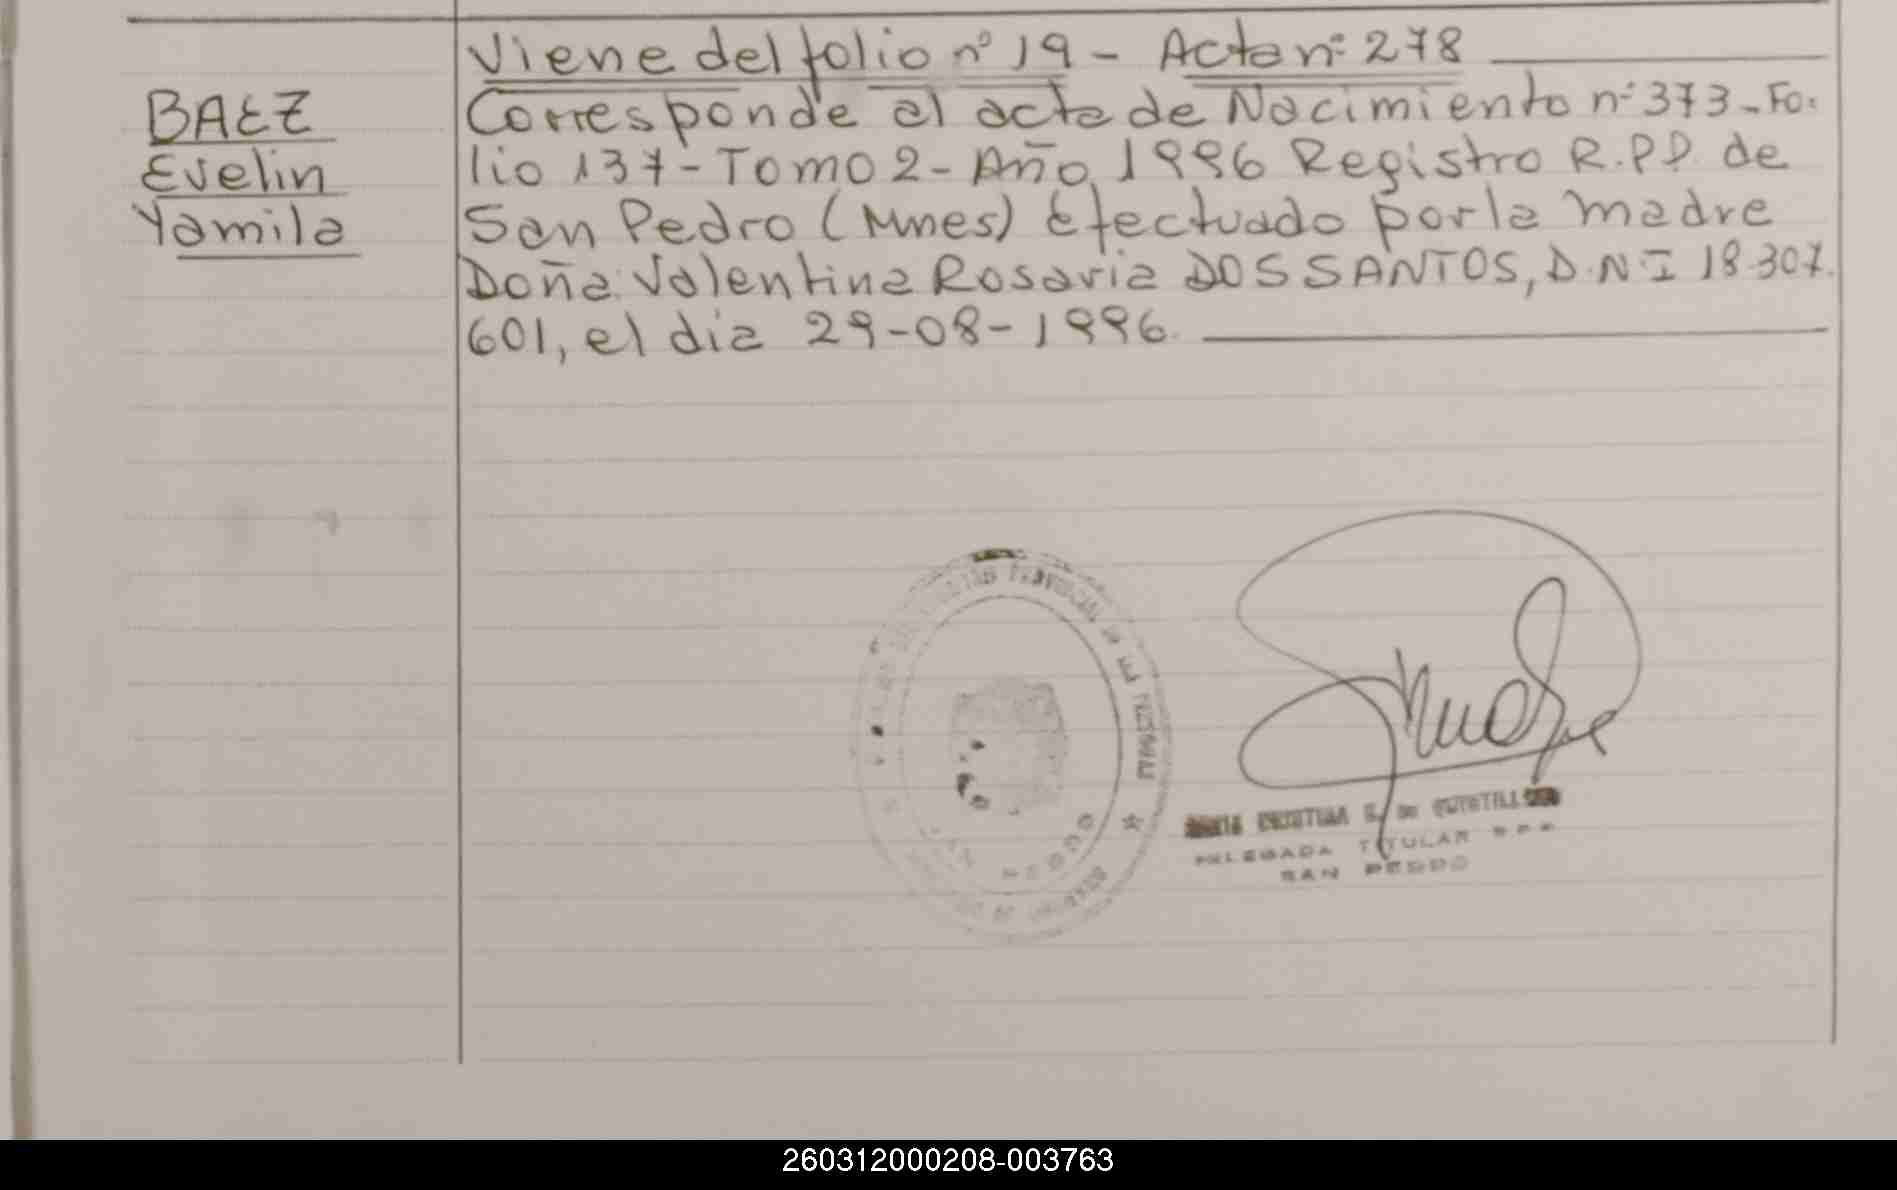 Viene del folio nº 19 - Acta nº 278
BAEZ
Evelin
Yamila
Corresponde al acta de Nacimiento nº 373 - Fo-
lio 137 - Tomo 2 - Año 1996 Registro R.P.P. de
San Pedro (Mnes) Efectuado por la madre
Doña Valentina Rosaria DOS SANTOS, D.N.I 18.307.
601, el dia 29-08-1996.
PROVINCIAL DE LAS PERSONAS
DELEGADA TITULAR
SAN PEDRO
260312000208-003763